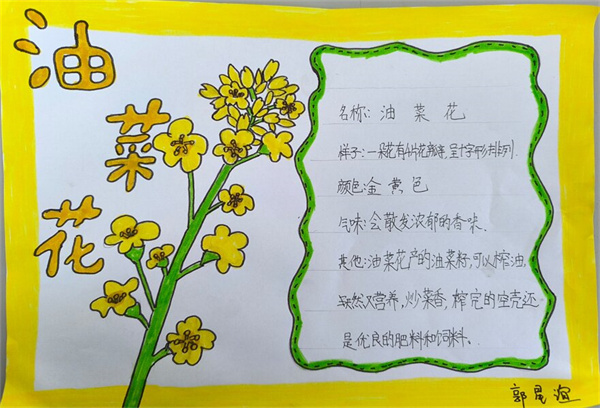 油菜花
名称: 油 菜 花
样子: 一朵花有4片花瓣, 呈十字形排列.
颜色: 金 黄 色
气味: 会散发浓郁的香味.
其他: 油菜花产的油菜籽, 可以榨油,
天然又营养, 炒菜香, 榨完的空壳还
是优良的肥料和饲料.
郭晟谊